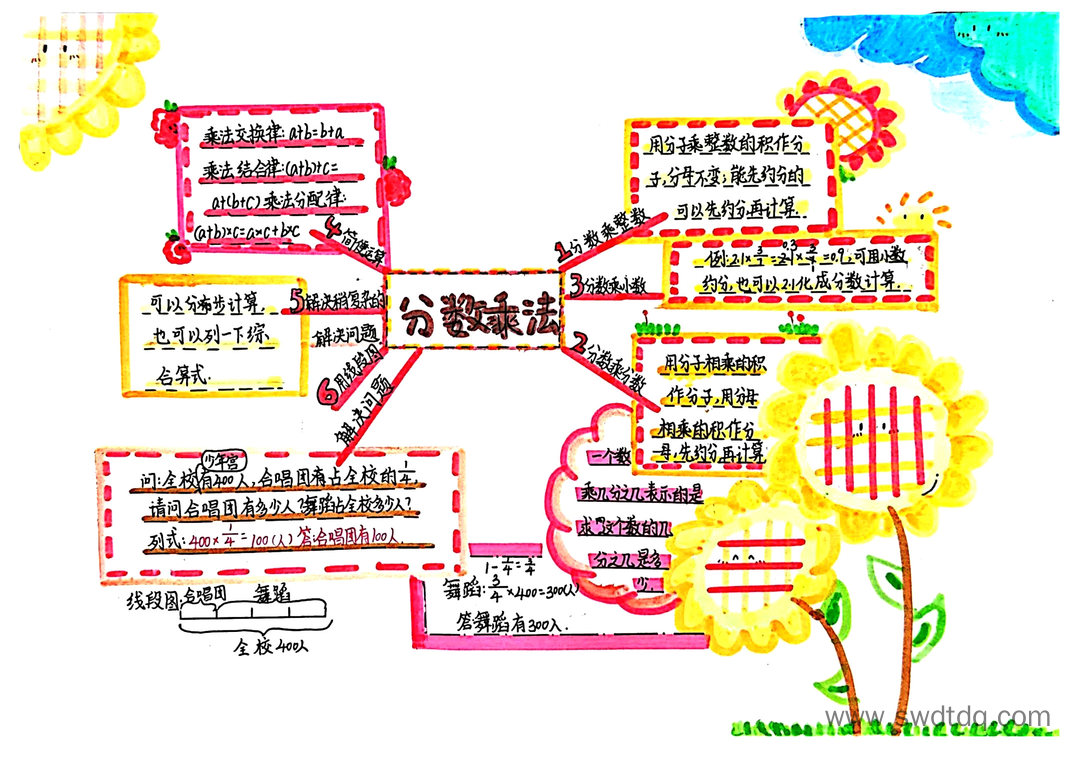 分数乘法
1分数乘整数
用分子乘整数的积作分
子,分母不变;能先约分的
可以先约分再计算.
3分数乘小数
例:2.1×
=0.9,可用小数
约分,也可以2.1化成分数计算.
2分数乘分数
用分子相乘的积
作分子,用分母
相乘的积作分
母,先约分再计算
一个数
乘几分之几表示的是
求"这个数的几
分之几是多
少.
4简便运算
乘法交换律:a+b=b+a
乘法结合律:(a+b)+c=
a+(b+c)乘法分配律:
(a+b)×c=a×c+b×c
5解决稍复杂的
解决问题
可以分布步计算.
也可以列一下综
合算式.
6用线段图
解决问题
少年宫
问:全校有400人,合唱团有占全校的1/4,
请问合唱团有多少人?舞蹈占全校多少人?
列式:400×1/4=100(人)答合唱团有100人
线段图 合唱团 舞蹈
全校400人
1-1/4=3/4
舞蹈:3/4×400=300(人)
答舞蹈有300人.
www.swdtdq.com